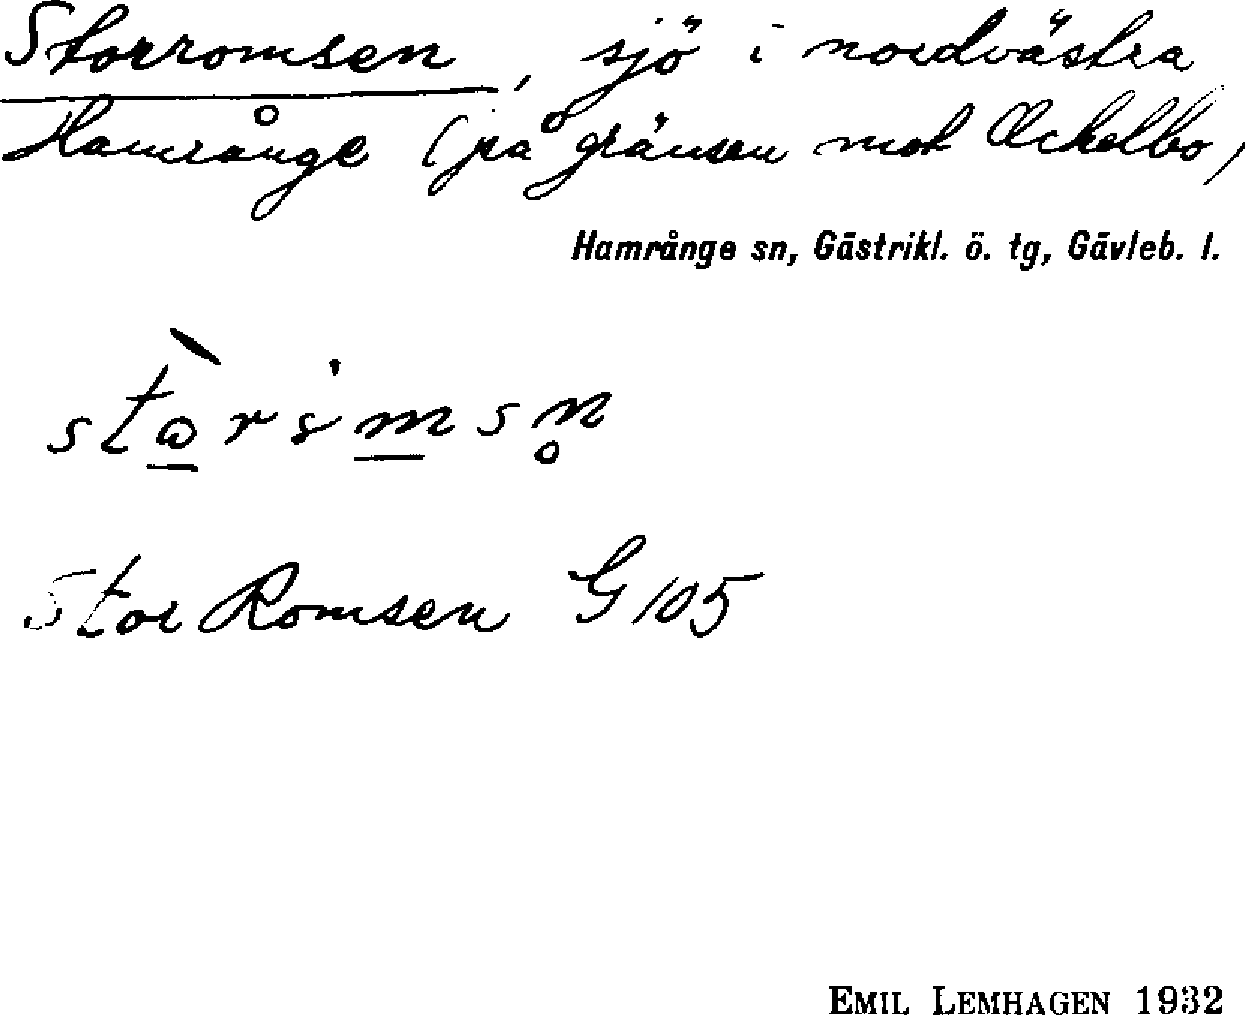 Storromsen, sjö i nordvästra
Hamrånge (på gränsen mot Ockelbo)
Hamrånge sn, Gästrikl. ö. tg, Gävleb. l.
Stor Romsen G 105
EMIL LEMHAGEN 1932